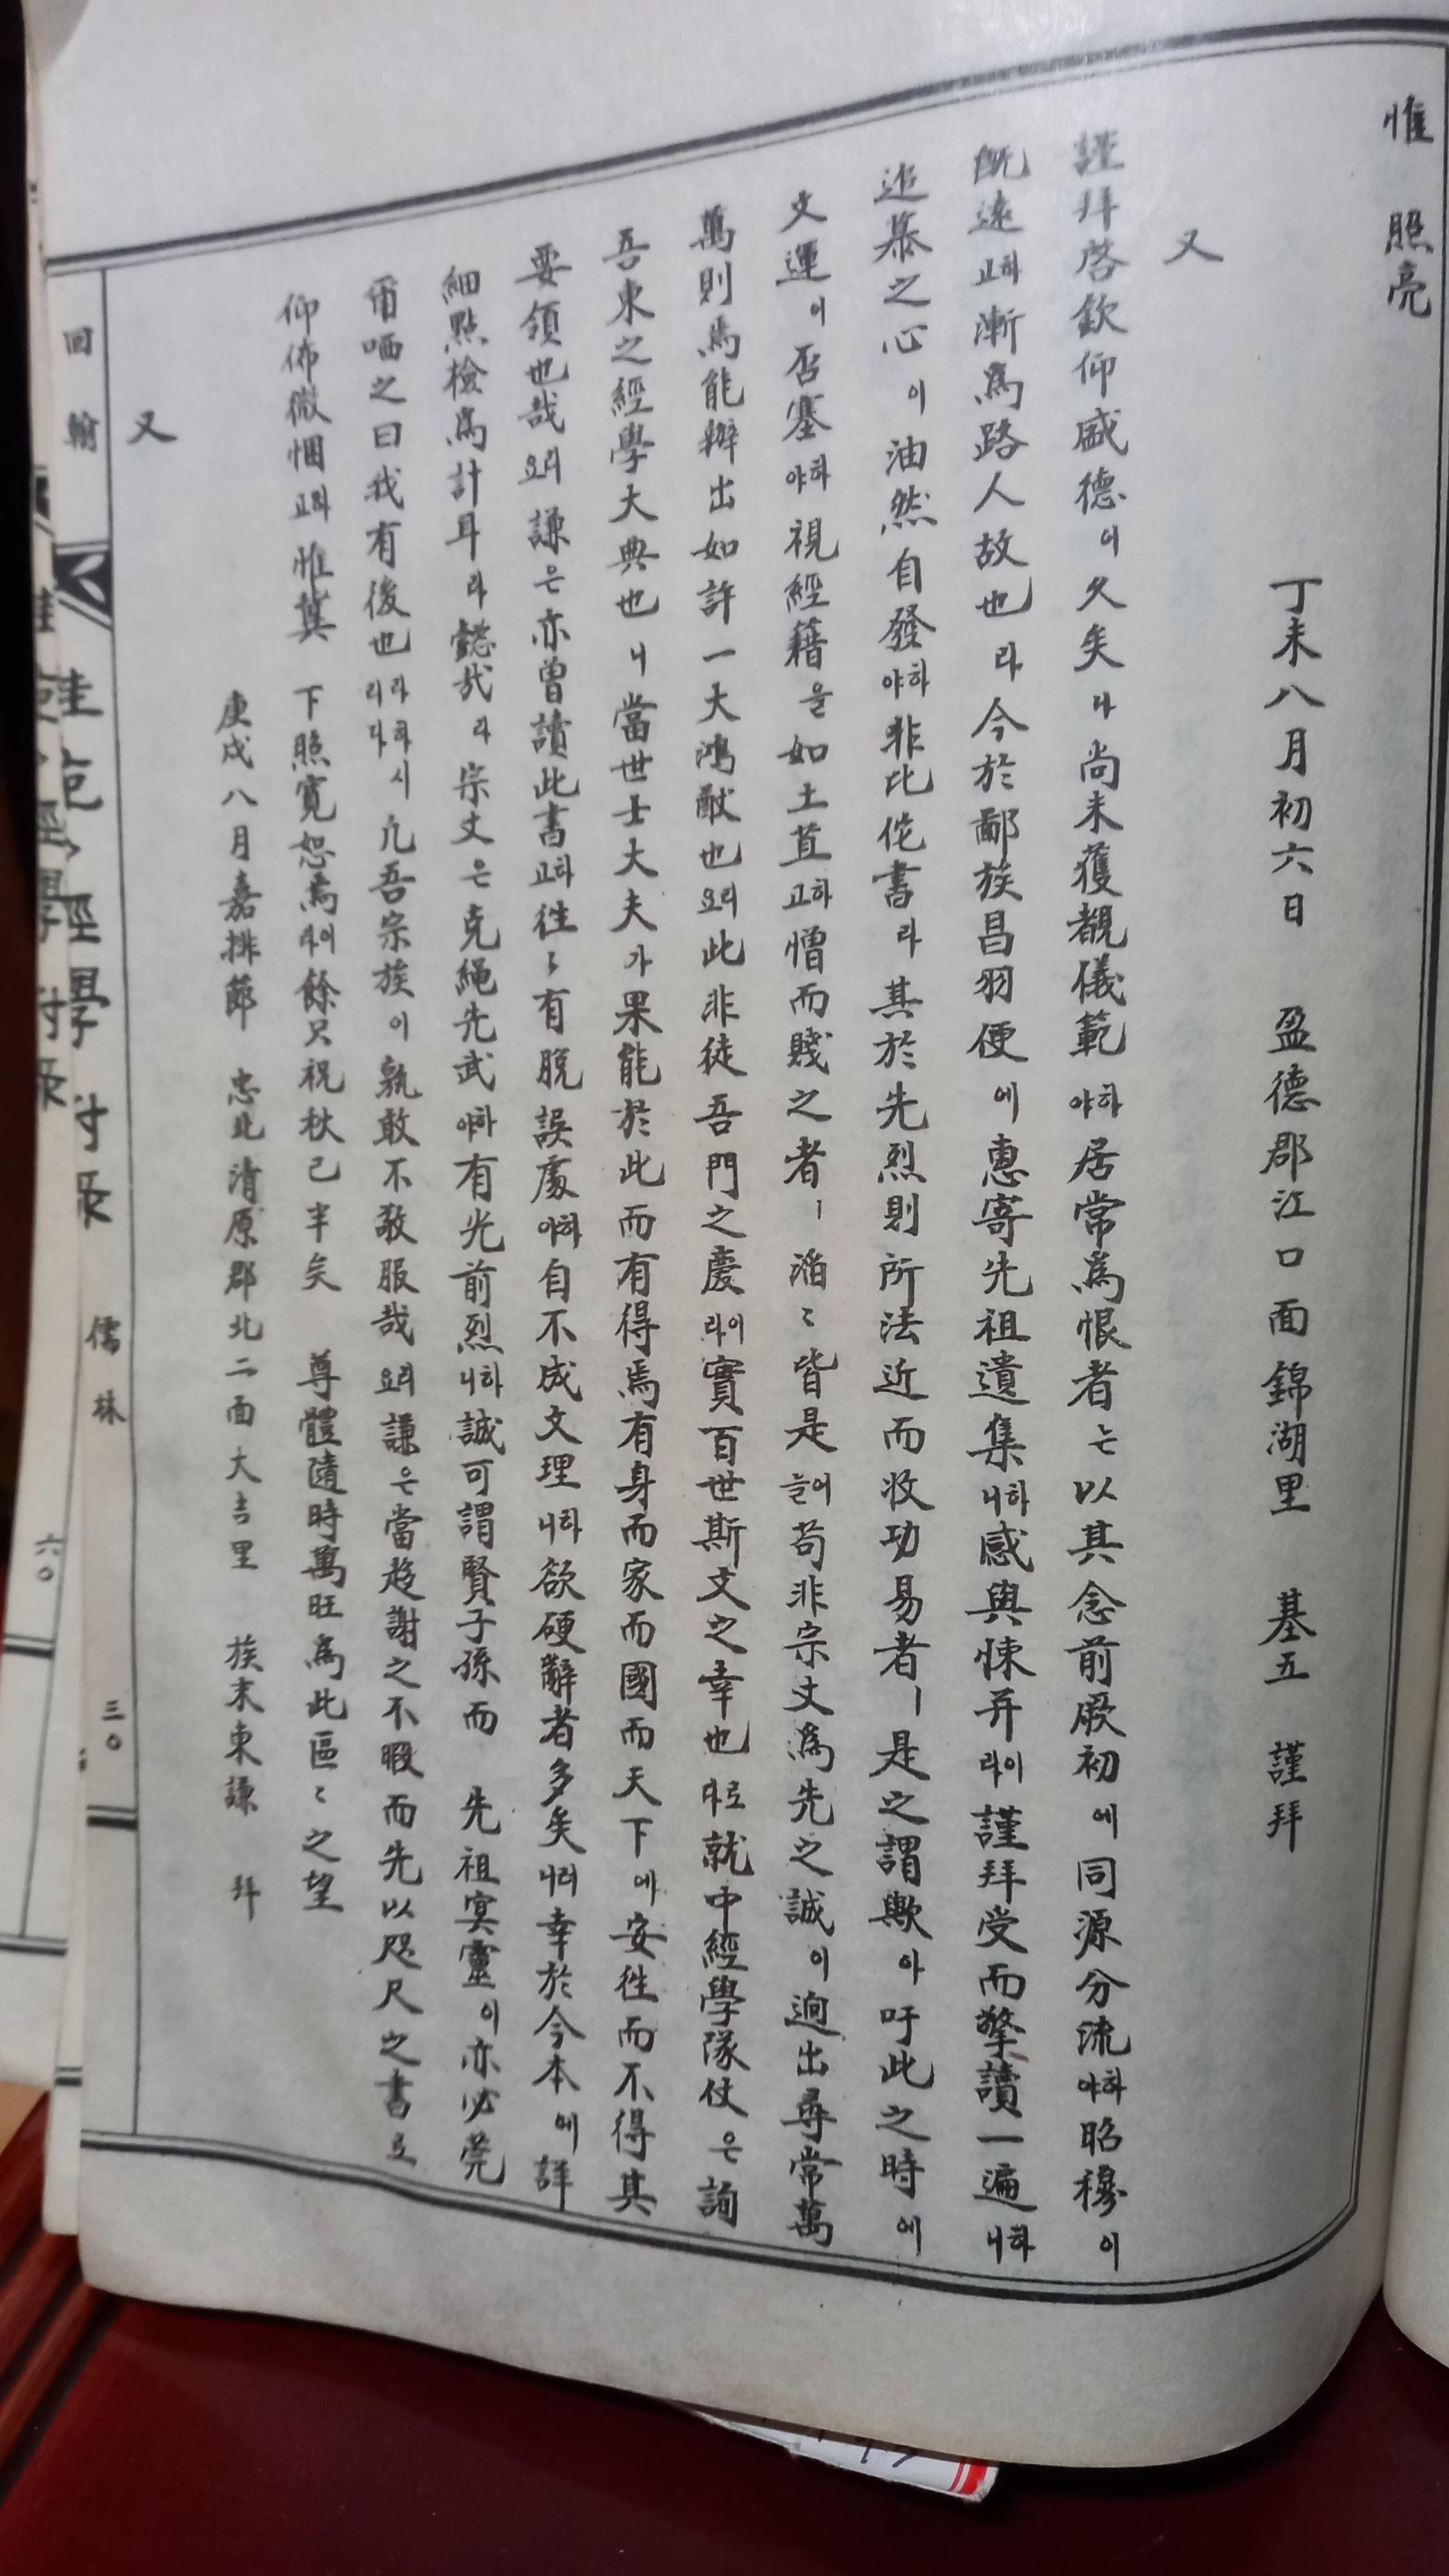 惟照亮
丁未八月初六日 盈德郡江口面錦湖里 基五 謹拜
又
謹拜啓欽仰盛德이久矣나尚未獲覩儀範하야居常爲恨者는以其念前厥初에同源分流하야昭穆이
旣遠하고漸爲路人故也라今於鄙族昌羽便에惠寄先祖遺集하니感與悚并이라謹拜受而擎讀一遍하니
追慕之心이油然自發하야非比佗書라其於先烈則所法近而收功易者ㅣ是之謂歟아吁此之時에
文運이否塞하야視經籍을如土苴하고憎而賤之者ㅣ滔〻皆是어늘苟非宗丈爲先之誠이逈出尋常萬
萬則焉能辦出如許一大鴻猷也리요此非徒吾門之慶이라實百世斯文之幸也로다就中經學隊仗은詢
吾東之經學大典也니當世士大夫가果能於此而有得焉有身而家而國而天下에安往而不得其
要領也哉리요謙은亦曾讀此書하고往〻有脫誤處하야自不成文理하니欲硬辭者多矣러니幸於今本에詳
細點檢爲計耳라懿哉라宗丈은克繩先武하야有光前烈하니誠可謂賢子孫而 先祖冥靈이亦必莞
甭哂之曰我有後也라하시리다凡吾宗族이孰敢不敬服哉리요謙은當趍謝之不暇而先以咫尺之書로
仰佈微悃고라惟冀 下照寬恕焉이라餘只祝秋已半矣 尊體隨時萬旺爲此區〻之望
庚戌八月嘉排節 忠北清原郡北二面大吉里 族末東謙 拜
又
回翰
經學
儒林
三〇
六〇